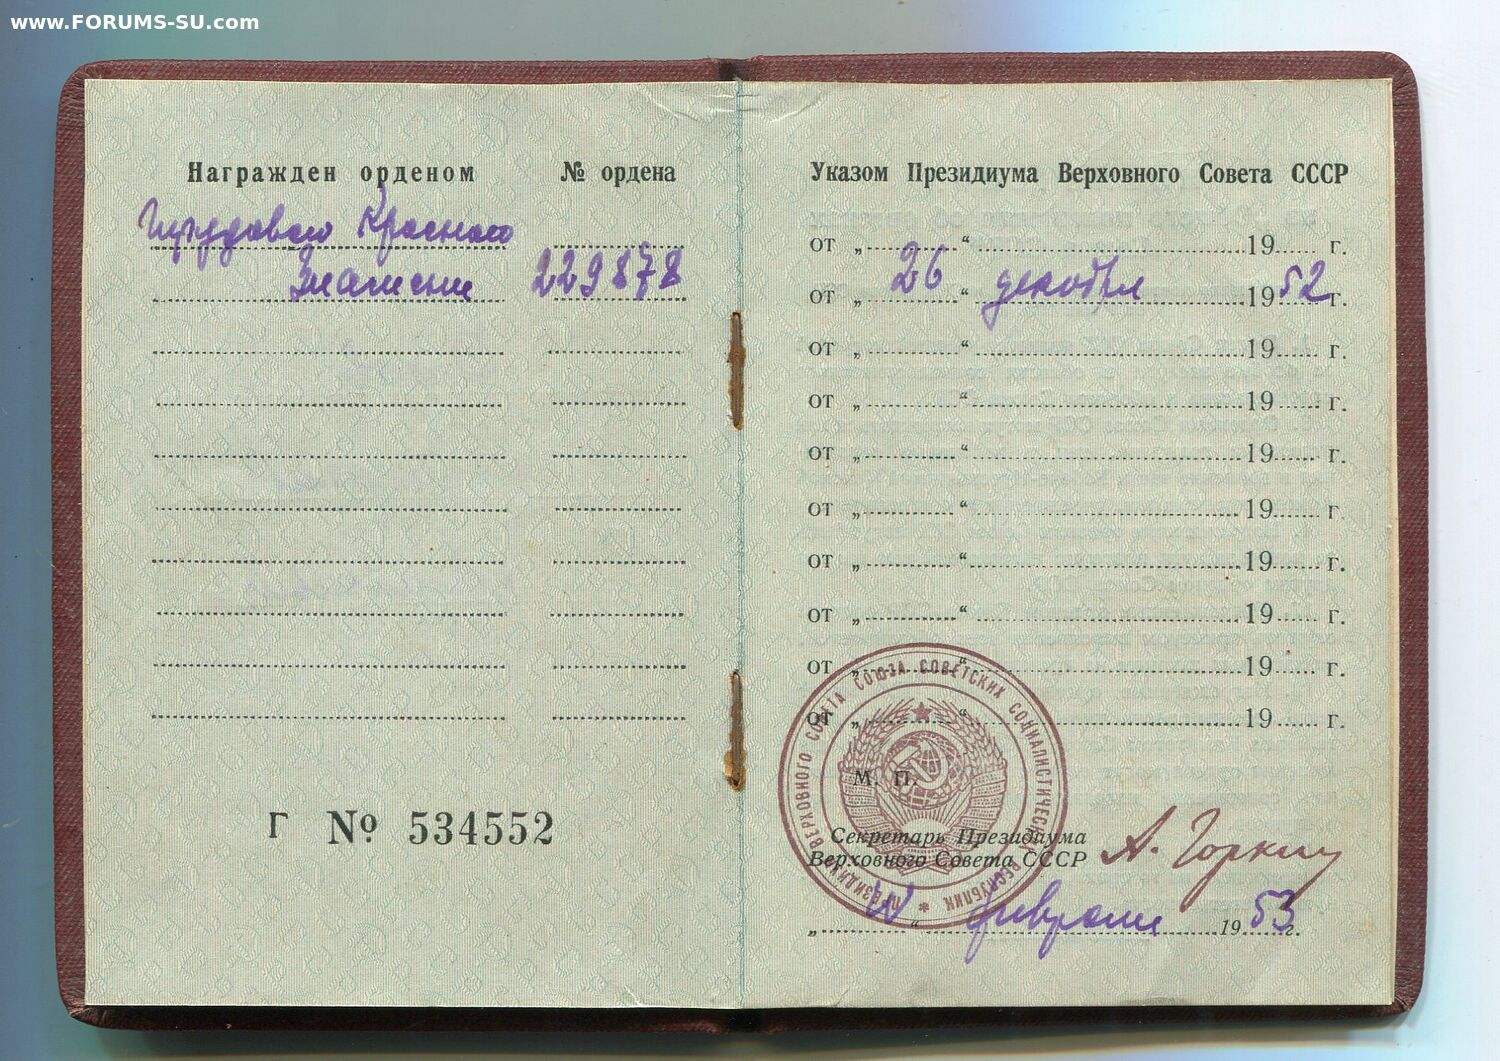 www.FORUMS-SU.com
Награжден орденом № ордена
Трудового Красного
Знамени 229878
Г № 534552
Указом Президиума Верховного Совета СССР
от „ “ 19 г.
от „ 26 “ декабря 1952 г.
от „ “ 19 г.
от „ “ 19 г.
от „ “ 19 г.
от „ “ 19 г.
от „ “ 19 г.
от „ “ 19 г.
от „ “ 19 г.
от „ “ 19 г.
М. П.
ПРЕЗИДИУМ ВЕРХОВНОГО СОВЕТА СОЮЗА СОВЕТСКИХ СОЦИАЛИСТИЧЕСКИХ РЕСПУБЛИК *
Секретарь Президиума
Верховного Совета СССР А. Горкин
„ “ февраля 1953 г.